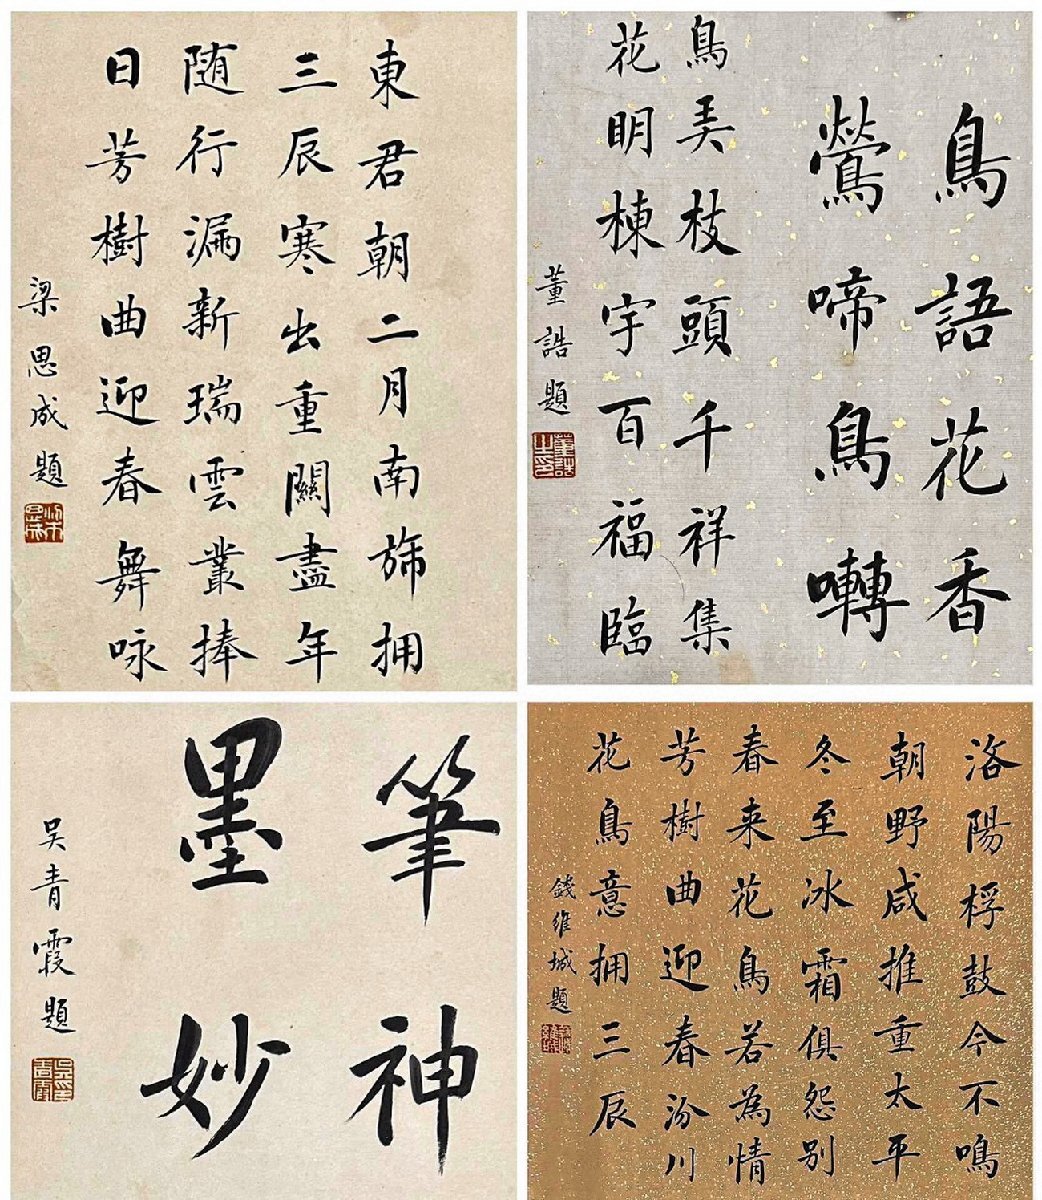 東君朝二月南旆拥
三辰寒出重關盡年
随行漏新瑞雲叢捧
日芳樹曲迎春舞咏
梁思成題
鳥語花香
鶯啼鳥囀
鳥弄枝頭千祥集
花明棟宇百福臨
董誥題
董誥之印
筆神
墨妙
吴青霞題
洛陽桴鼓今不鳴
朝野咸推重太平
冬至冰霜俱怨别
春来花鳥若為情
芳樹曲迎春汾川
花鳥意拥三辰
錢維城題